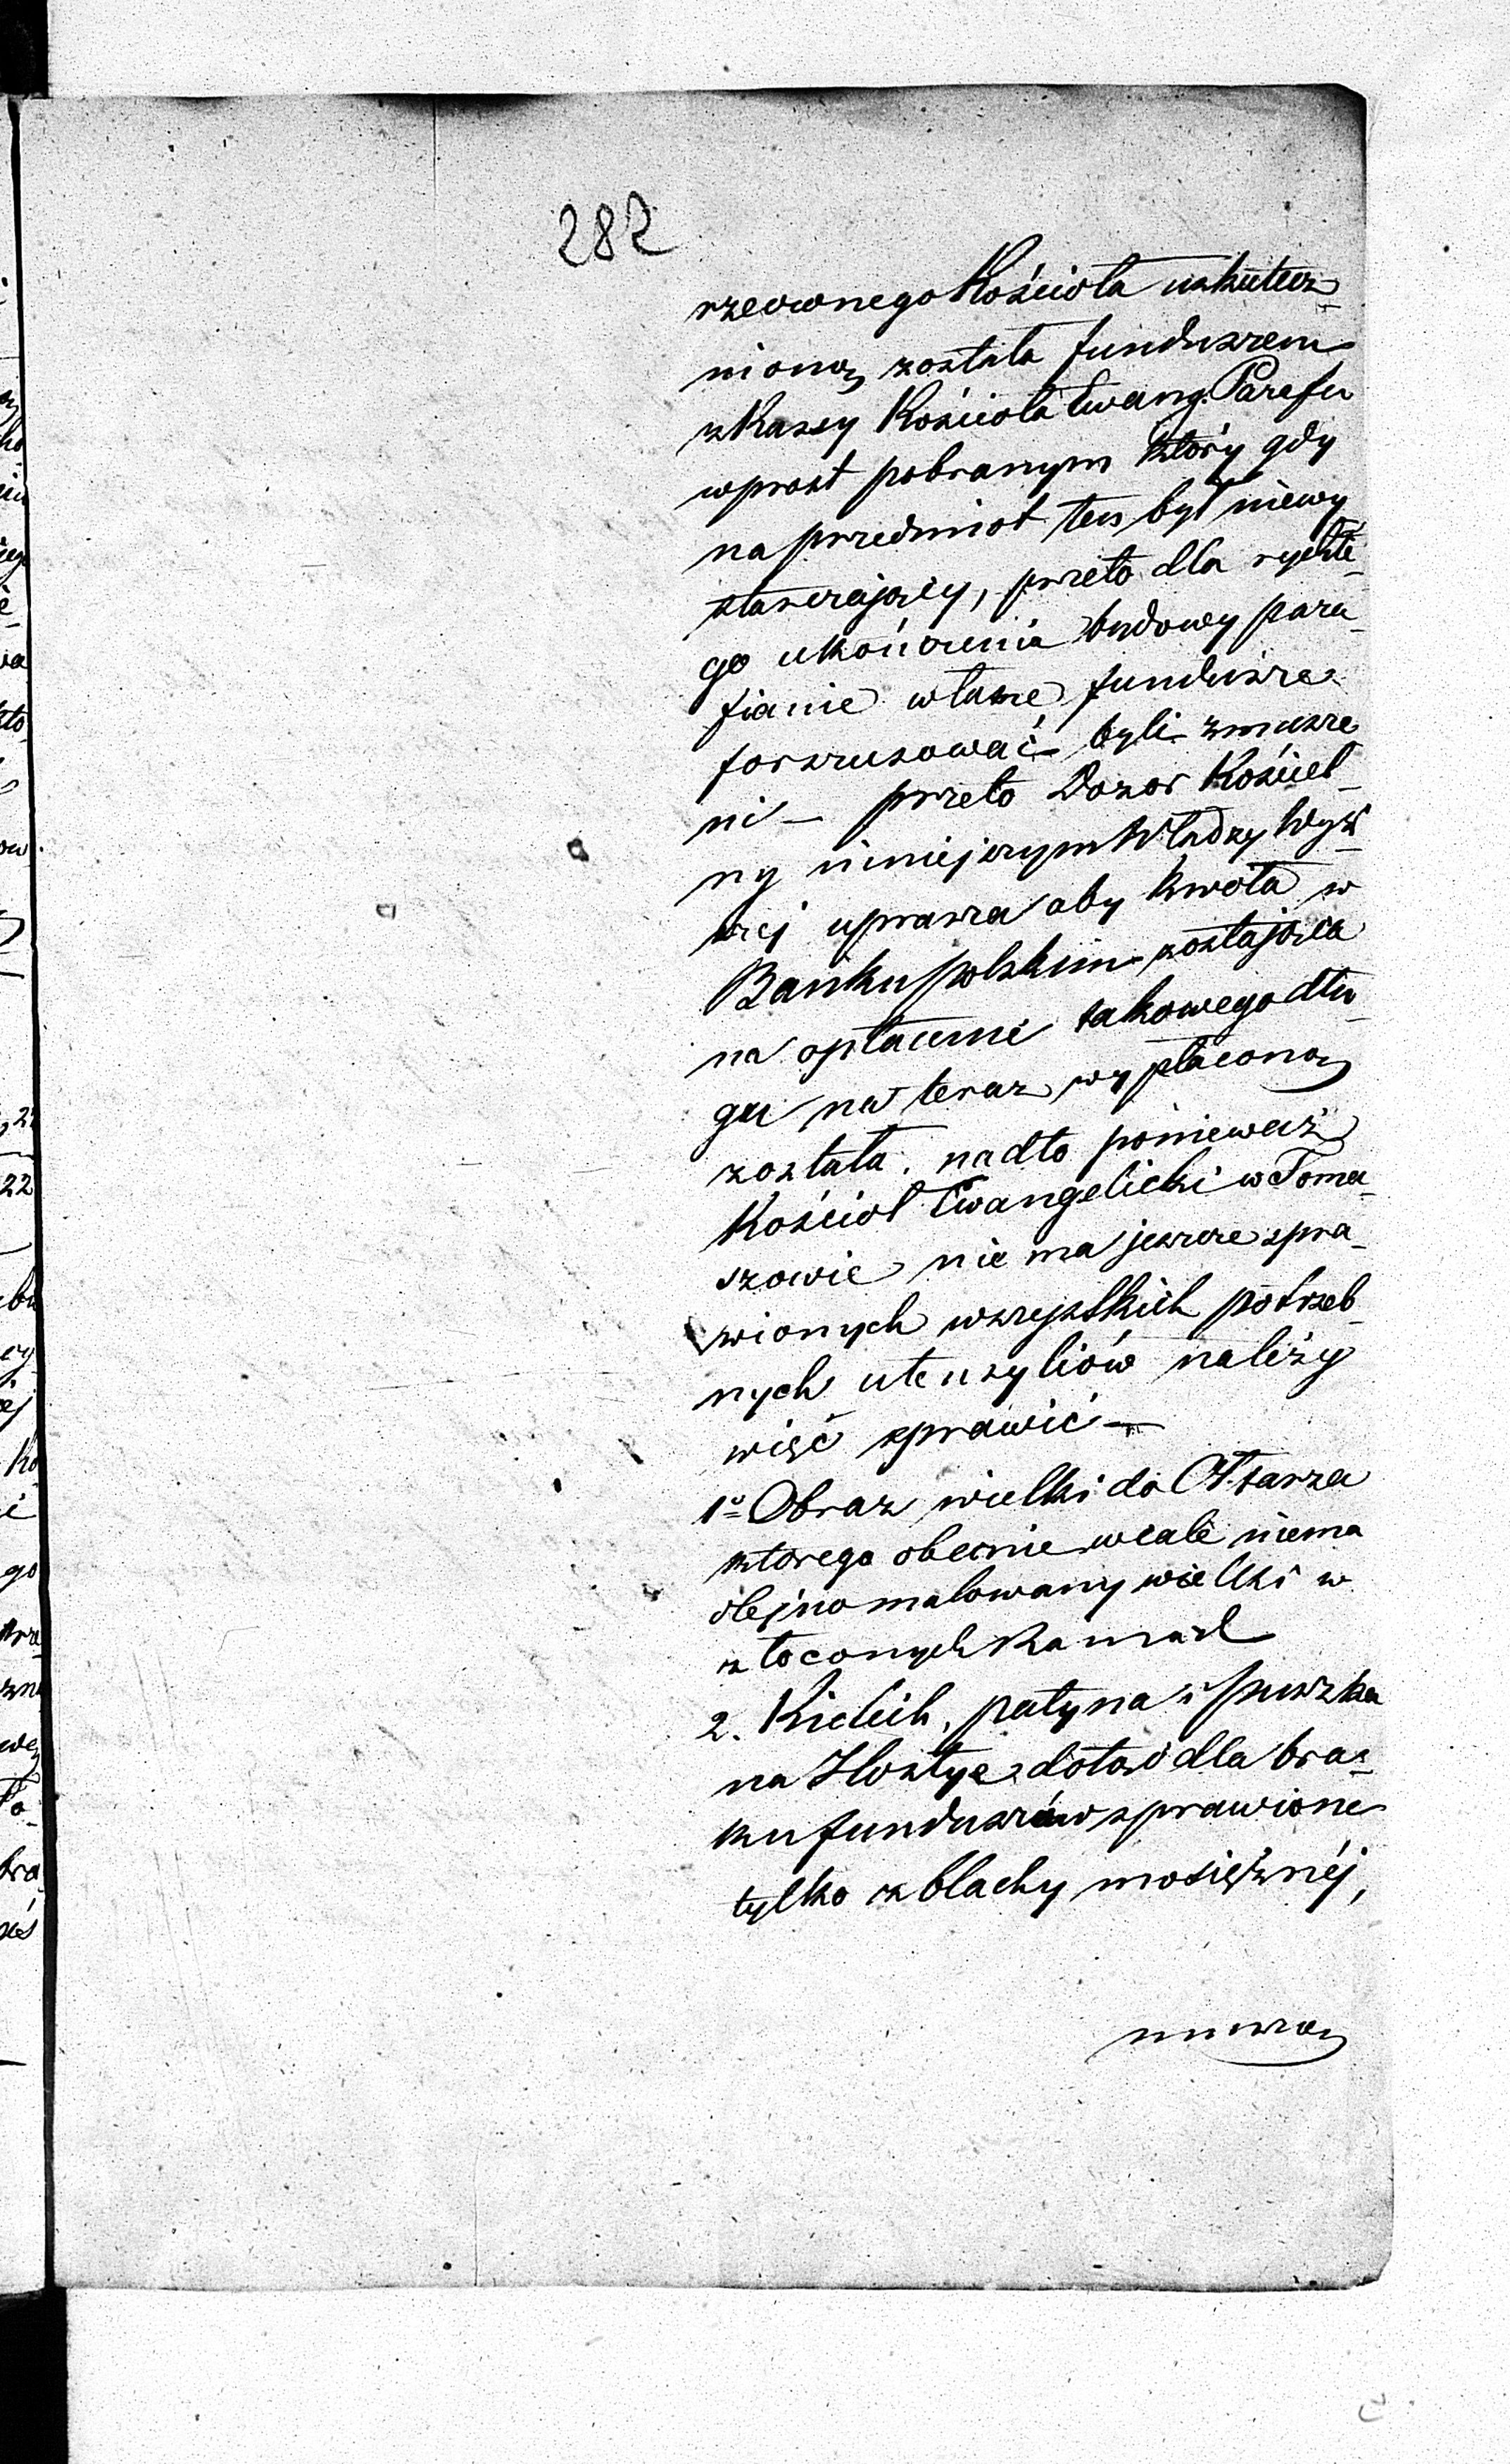 282
rzeconego Kościoła uskutecz-
nioną została funduszem
z Kassy Kościoła Ewang. Parafii
wprost pobranym który gdy
na przedmiot ten był niewy
starczający, przeto dla rychłe-
go ukończenia budowy para-
fianie własne fundusze
forszusować byli zmusze
ni – przeto Dozor Kościel-
ny niniejszym Władzy Wyż-
szej uprasza aby kwota w
Banku polskim zostająca
na opłacenie takowego dłu-
gu na teraz wypłaconą
została. nadto ponieważ
Kościoł Ewangelicki w Toma-
szowie nie ma jeszcze spra-
wionych wszystkich potrzeb-
nych utensyliów należy
więc sprawić –
1o Obraz wielki do Ołtarza
ktorego obecnie wcale niema
olejno malowany wielki w
złoconych Ramach
2. Kielich, patyna i puszka
na Hostye dotąd dla bra-
ku funduszów sprawione
tylko z blachy mosiężnéj,